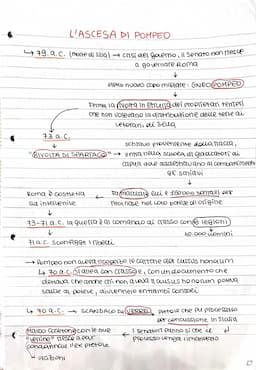 L'ASCESA DI POMPEO
→ 79 a.C. (morte di Silla) → crisi del governo, il Senato non riesce
a governare Roma
eletto nuovo capo militare: GNEO POMPEO
Ferma la rivolta in Etruria dei proprietari terrieri
che non volevano la distribuzione delle terre ai
veterani di Silla
73 a.C.
"RIVOLTA DI SPARTACO" → schiavo proveniente dalla Tracia,
entra nella scuola di gladiatori di
Capua dove addestravano al combattimento
gli schiavi
Roma è costretta
ad intervenire
Fa marciare lui e 120000 schiavi per
tornare nel loro paese di origine
73-71 a.C. la guerra è al comando di Crasso con 8 legioni
40.000 uomini
71 a.C. sconfigge i ribelli
→ Pompeo non aveva le cariche del cursus honorum
↳ 70 a.C. si allea con Crasso e, con un documento che
diceva che anche chi non aveva il cursus honorum poteva
salire al potere, divennero entrambi consoli
↳ 70 a.C. → SCANDALO DI VERRE, pretore che fu processato
per concussione in Sicilia
Marco Cicerone con le due
"verrine" riesce a far
condannare l'ex pretore
↳ orazioni
I senatori fanno sì che il
processo venga